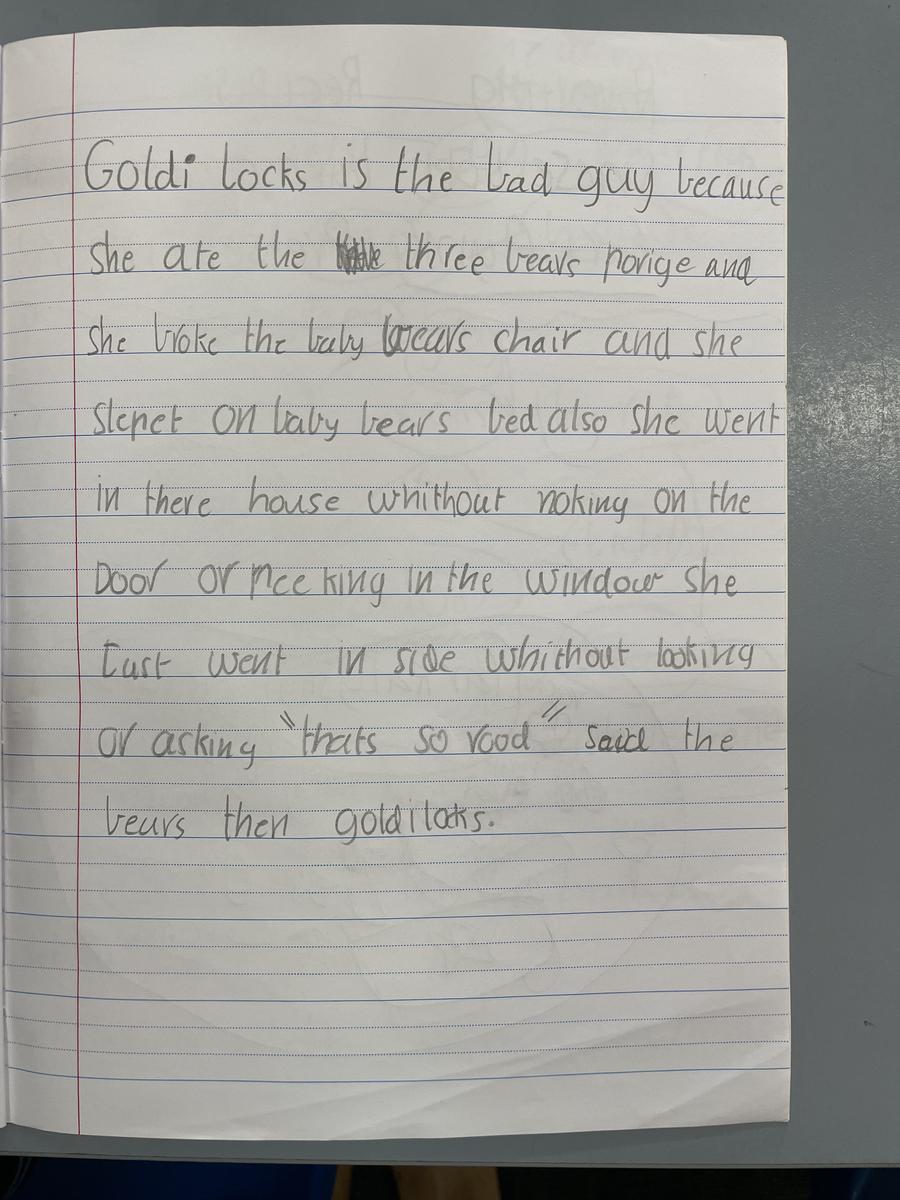 Goldi locks is the bad guy because
she ate the three bears porige and
she broke the baby bears chair and she
Slepet on baby bears bed also she went
in there house whithout noking on the
Door or peeking in the window she
Just went in side whithout looking
or asking "thats so rood" said the
bears then goldiloks.